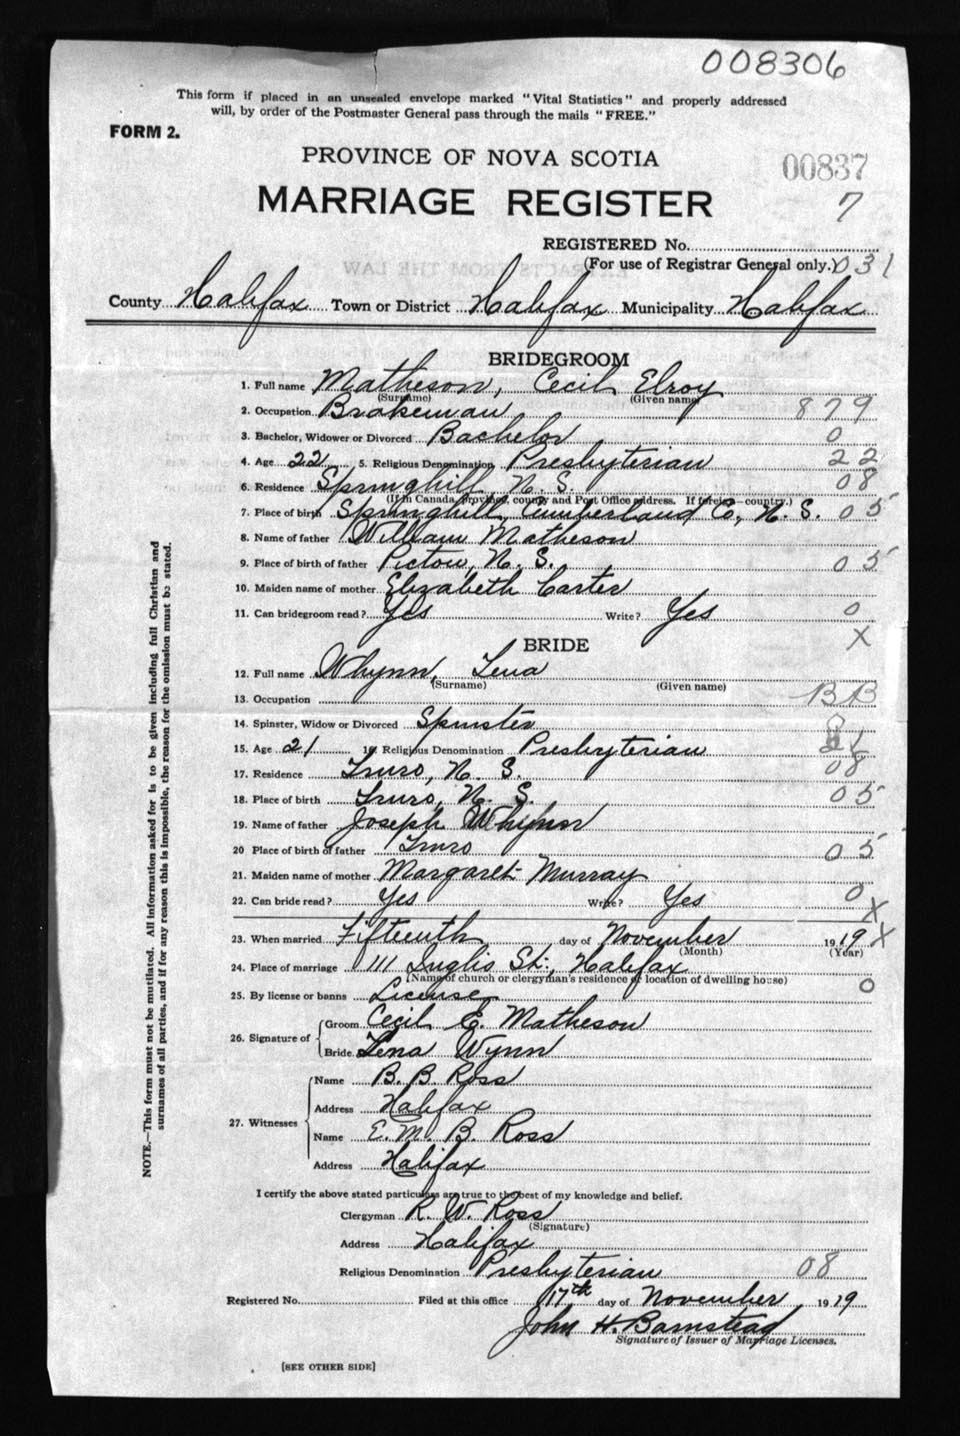 008306
This form if placed in an unsealed envelope marked "Vital Statistics" and properly addressed
will, by order of the Postmaster General pass through the mails "FREE."
FORM 2.
PROVINCE OF NOVA SCOTIA
00837
MARRIAGE REGISTER
7
REGISTERED No.
(For use of Registrar General only.) 031
County Halifax Town or District Halifax Municipality Halifax
BRIDEGROOM
1. Full name Matheson, Cecil Elroy
(Surname) (Given name)
2. Occupation Brakeman 879
3. Bachelor, Widower or Divorced Bachelor 0
4. Age 22 5. Religious Denomination Presbyterian 22
6. Residence Springhill, N. S. 08
(If in Canada, province, county and Post Office address. If foreign—country.)
7. Place of birth Springhill, Cumberland Co., N. S. 05
8. Name of father William Matheson
9. Place of birth of father Pictou, N. S. 05
10. Maiden name of mother Elizabeth Carter
11. Can bridegroom read? Yes Write? Yes 0
X
BRIDE
12. Full name Whynn, Lena
(Surname) (Given name)
13. Occupation BB
14. Spinster, Widow or Divorced Spinster
15. Age 21 16 Religious Denomination Presbyterian
17. Residence Truro, N. S. 08
18. Place of birth Truro, N. S. 05
19. Name of father Joseph Whynn
20 Place of birth of father Truro 05
21. Maiden name of mother Margaret Murray
22. Can bride read? Yes Write? Yes 0
X
23. When married Fifteenth day of November 1919 X
(Month) (Year)
24. Place of marriage 111 Inglis St., Halifax
(Name of church or clergyman's residence or location of dwelling house) 0
25. By license or banns License
26. Signature of Groom Cecil E. Matheson
Bride Lena Wynn
27. Witnesses
Name B. B. Ross
Address Halifax
Name E. M. B. Ross
Address Halifax
I certify the above stated particulars are true to the best of my knowledge and belief.
Clergyman R. W. Ross
(Signature)
Address Halifax
Religious Denomination Presbyterian 08
Registered No. Filed at this office 17th day of November 1919
John H. Barnstead
Signature of Issuer of Marriage Licenses.
[SEE OTHER SIDE]
NOTE.—This form must not be mutilated. All information asked for is to be given including full Christian and
surnames of all parties, and if for any reason this is impossible, the reason for the omission must be stated.